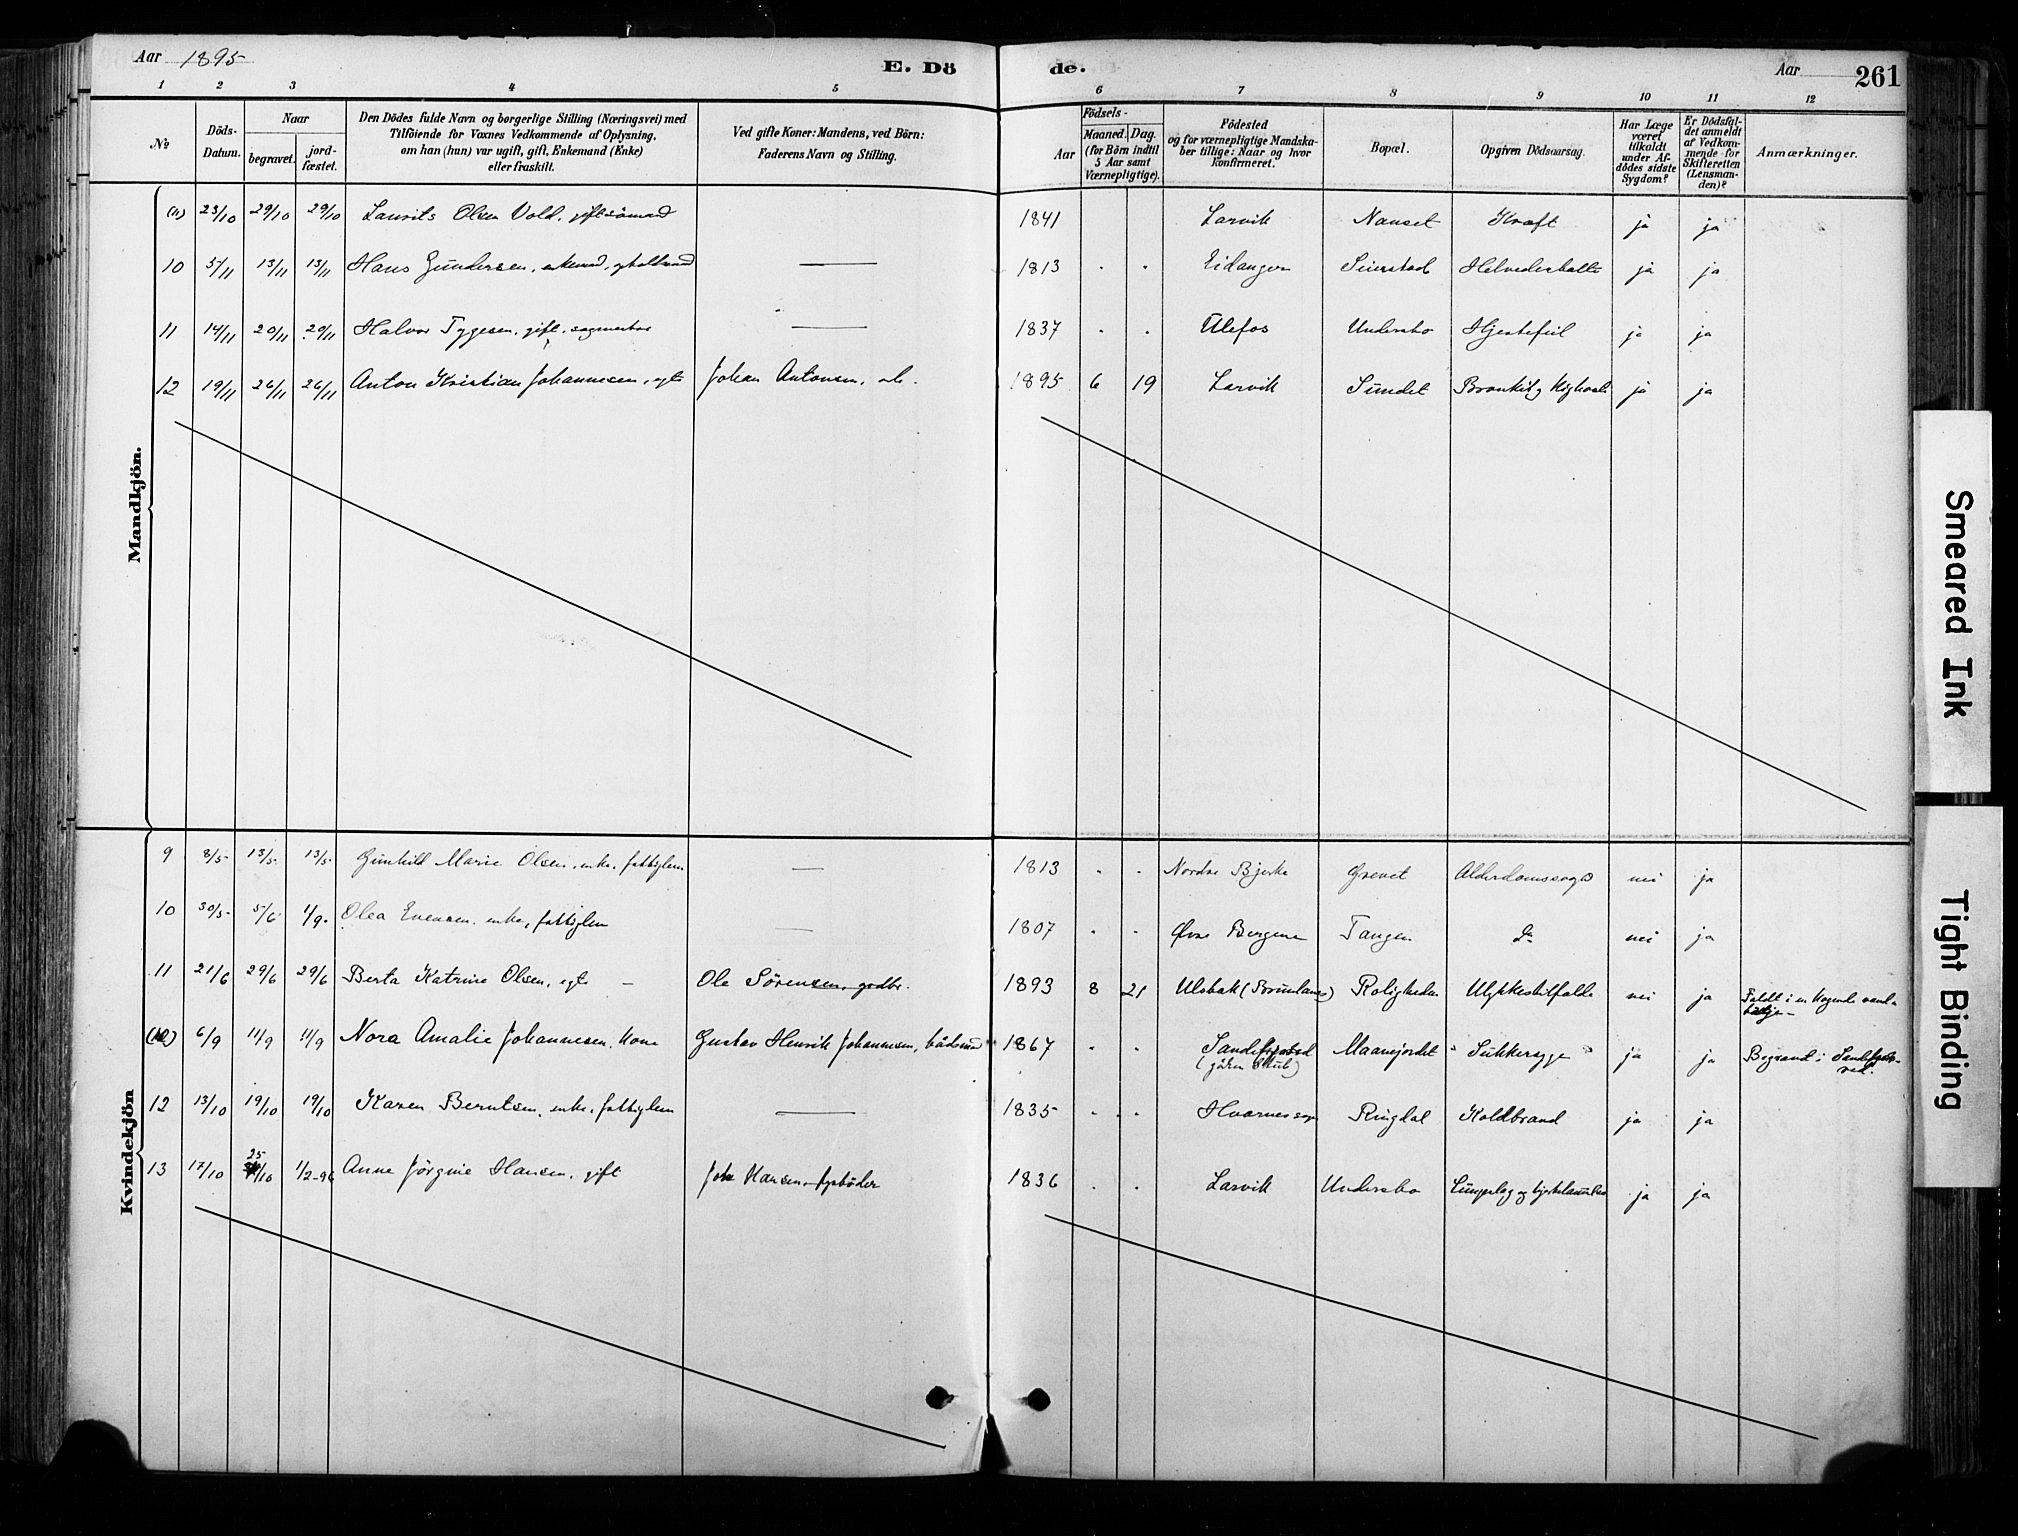 Aar 1895
E. Dö
de.
Aar
261
1 2 3 4 5 6 7 8 9 10 11 12
№
Döds-
Datum.
Naar
begravet.
jord-
fæstet.
Den Dödes fulde Navn og borgerlige Stilling (Næringsvei) med
Tilföiende for Voxnes Vedkommende af Oplysning,
om han (hun) var ugift, gift, Enkemand (Enke)
eller fraskilt.
Ved gifte Koner: Mandens, ved Börn:
Faderens Navn og Stilling.
Födsels-
Aar
Maaned. Dag.
(for Börn indtil
5 Aar samt
Værnepligtige).
Födested
og for værnepligtige Mandska-
ber tillige: Naar og hvor
Konfirmeret.
Bopæl.
Opgiven Dödsaarsag.
Har Læge
været
tilkaldt
under Af-
dödes sidste
Sygdom?
Er Dödsfal-
det anmeldt
af Vedkom-
mende for
Skifteretten
(Lensman-
den)?
Anmærkninger.
Mandkjön.
23/10 29/10 29/10 Laurits Olsen Vold, gift sömand 1841 Larvik Nanset Kræft ja ja
10 5/11 13/11 13/11 Hans Gundersen, — 1813 " " Eidanger Seierstad ja ja
11 14/11 20/11 20/11 Halvor Tygesen, gift, — 1837 " " Ulefos Undersbo Hjertefeil ja ja
12 19/11 26/11 26/11 Anton Kristian Johannesen, egte Johan Antonsen, 1895 6 19 Larvik Sundet Bronkit og Kighoste ja ja
Kvindekjön
9 8/5 13/5 13/5 Gunhild Marie Olsen, enke, fattiglem — 1813 " " Nordre Bjerke Grevet Alderdomssvag nei ja
10 30/5 5/6 1/9 Olea Evensen, enke, fattiglem — 1807 " " Øvre Bergene Tangen Do nei ja
11 21/6 29/6 29/6 Berta Katrine Olsen, egte — Ole Sörensen, 1893 8 21 Ulsbak (Brunlanes) Roligheden Ulykkestilfælde nei ja Faldt i en kogende vand-
balje—
6/9 11/9 11/9 Nora Amalie Johannesen, kone Gustav Henrik Johannesen, 1867 " " Sandefjord Maanejordet Sukkersyge ja ja Begravet i Sandeherred.
12 13/10 19/10 19/10 Karen Berntsen, enke, fattiglem — 1835 " " Hvarnes sogn Ringdal Koldbrand ja ja
13 17/10 25/10 1/2-96 Anne Jörgine Hansen, gift Joh. Hansen, fyrböder 1836 " " Larvik Undersbo ja ja
Smeared Ink
Tight Binding